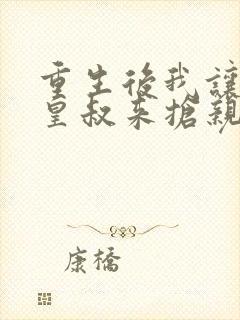 重生後我讓
皇叔来搶親
康橋